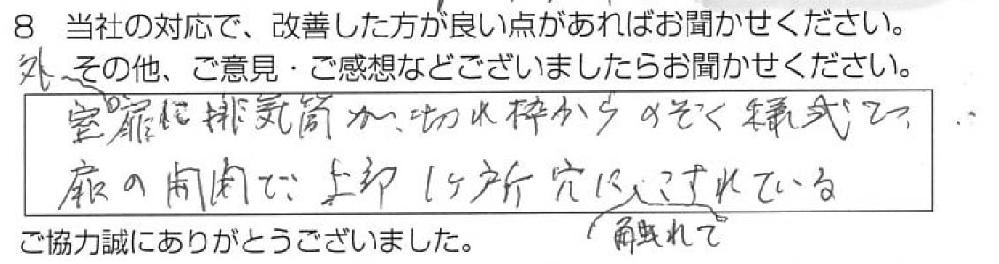 8 当社の対応で、改善した方が良い点があればお聞かせください。
その他、ご意見・ご感想などございましたらお聞かせください。
外
室扉に排気筒が、切れ枠からのぞく様式で、
扉の開閉で、上部1ヶ所穴にこすれている
触れて
ご協力誠にありがとうございました。